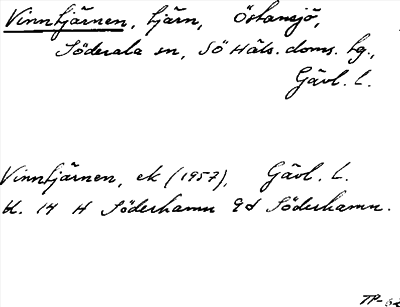 Vinntjärnen, tjärn, Östansjö,
Söderala sn, SöHäls. doms. tg.,
Gävl. L.
Vinntjärnen, ek (1957), Gävl. L.
bl. 14 H Söderhamn 9d Söderhamn.